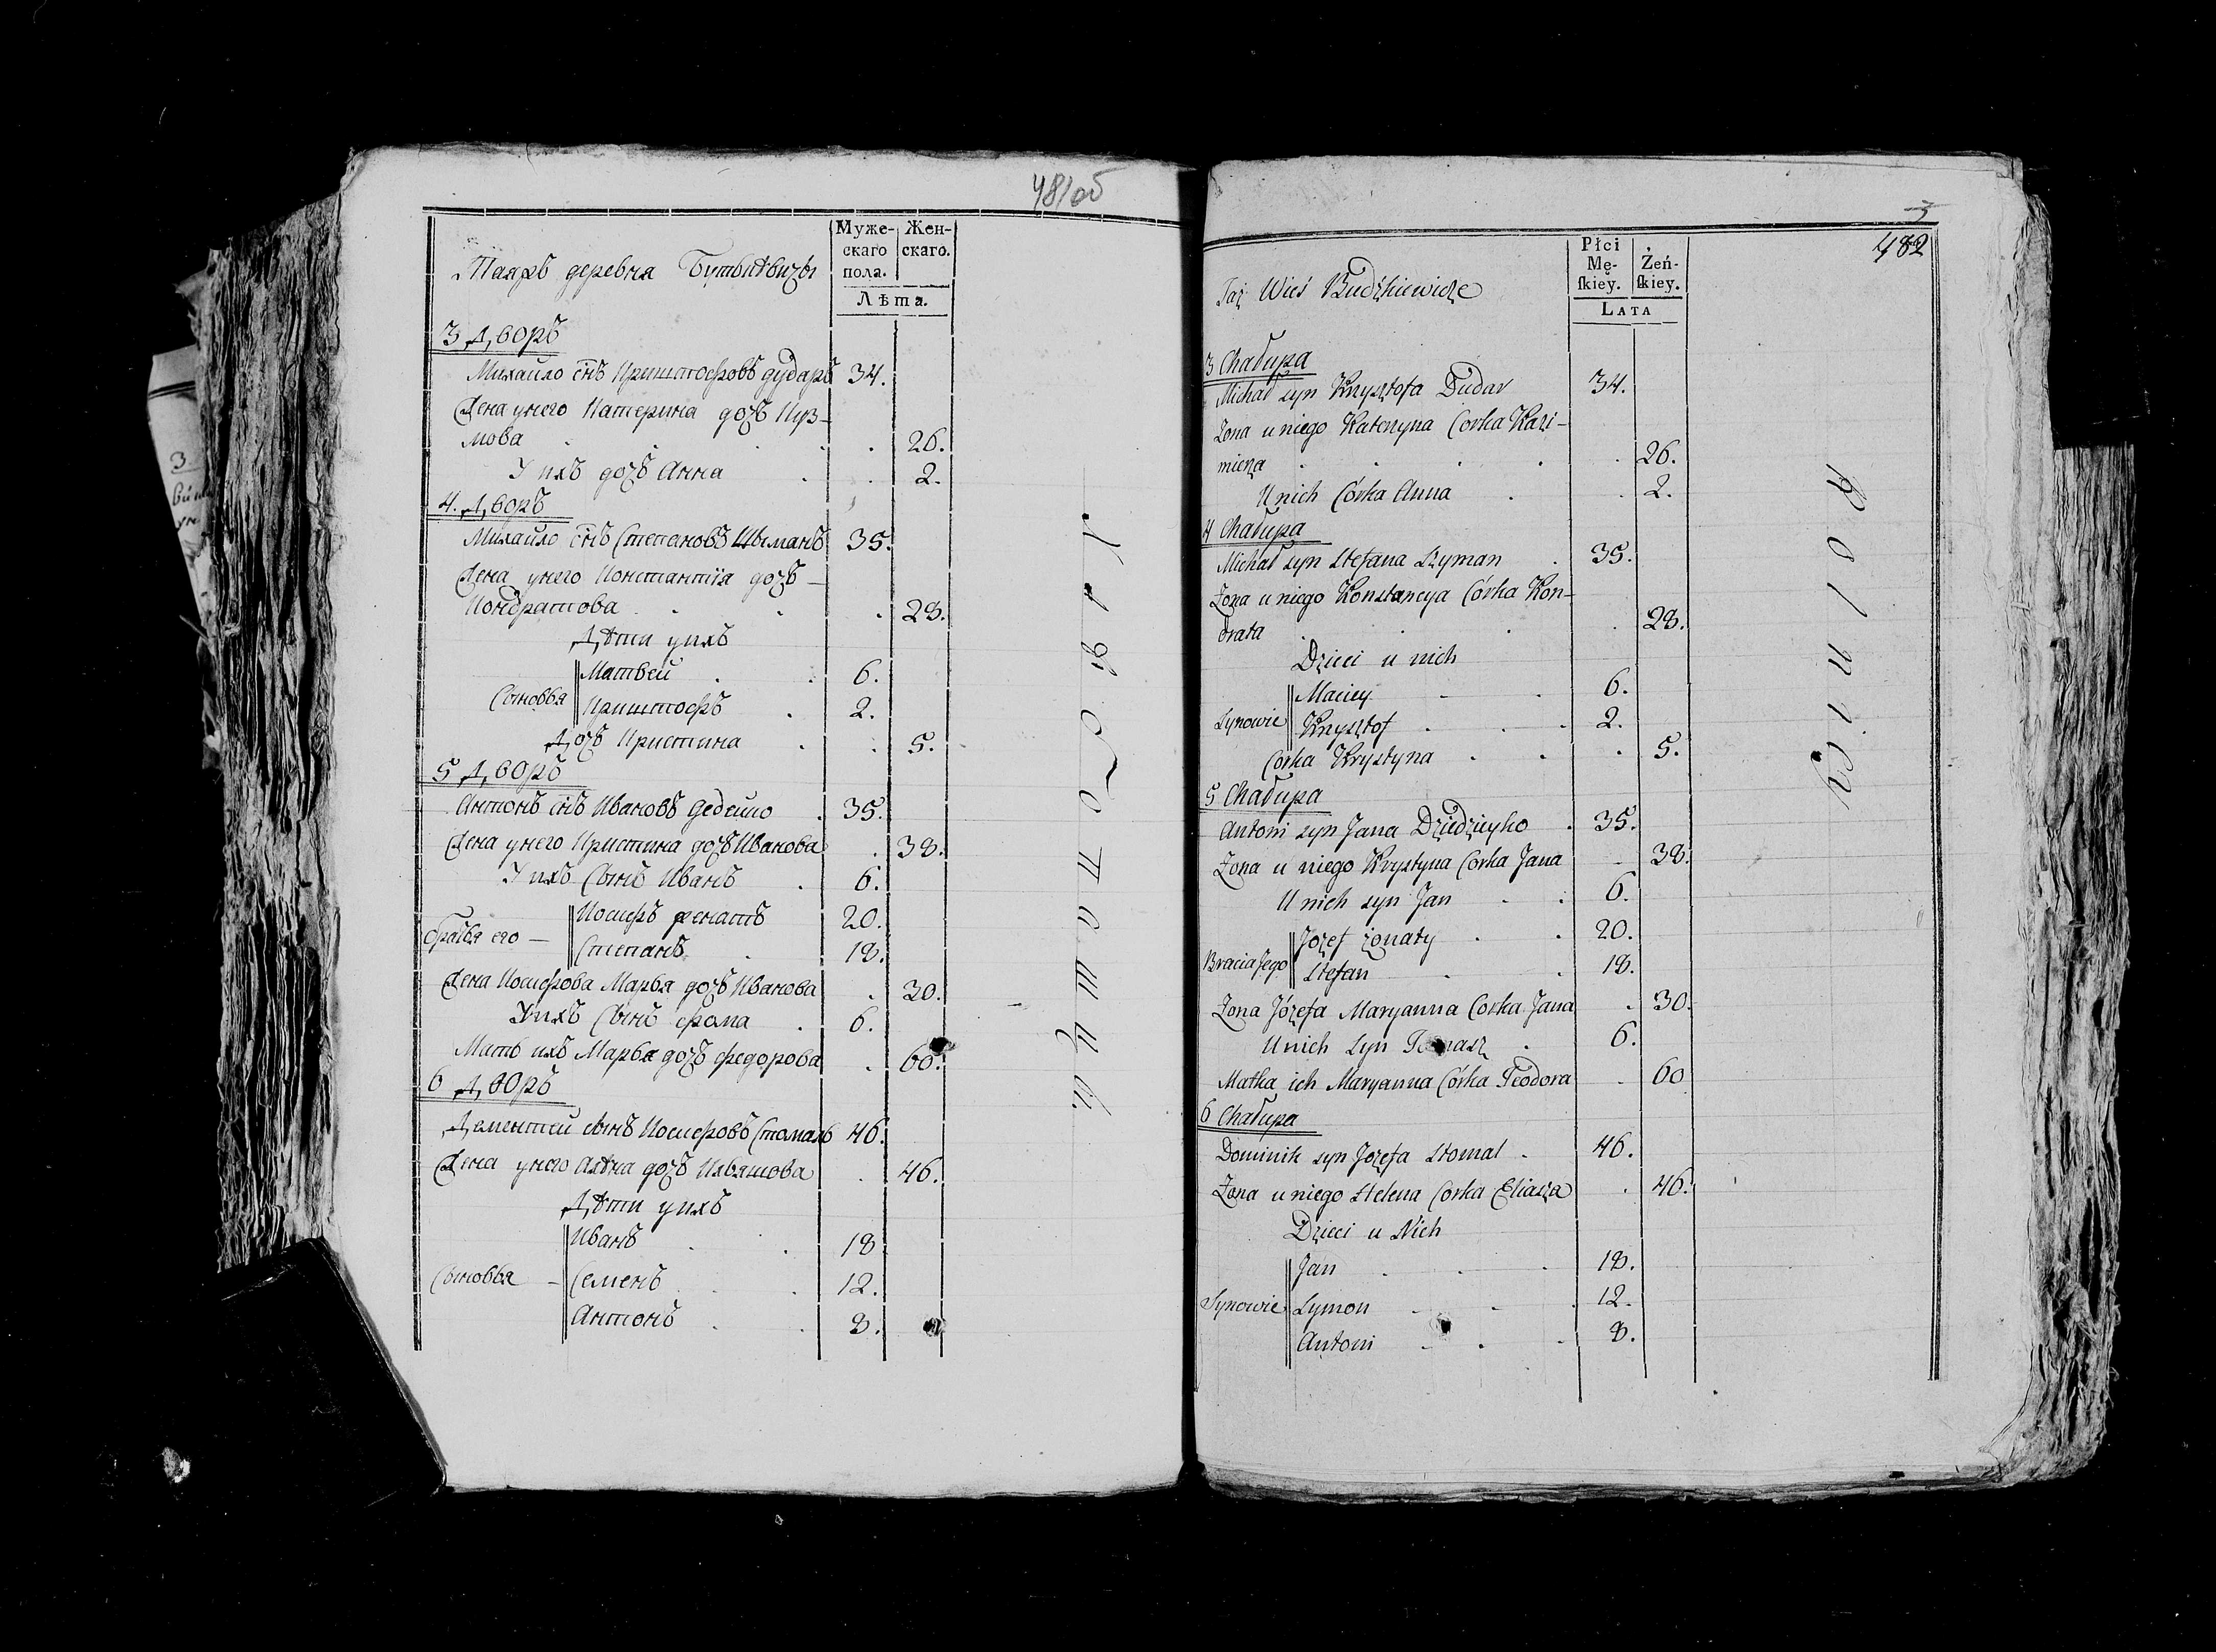 481об
Муже-
скаго
пола.
Жен-
скаго.
Лѣта.
Таяжъ деревня Бутькѣвичы
3 Дворъ
Михайло снъ Криштофовъ дударъ 34.
Жена унего Катерина дочь Куз-
мова 26.
У ихъ дочь Анна 2.
4. Дворъ
Михайло снъ Степановъ Шыманъ 35.
Жена унего Константія дочь
Кондратова 28.
Дѣти уихъ
Сыновья
Матвей 6.
Криштофъ 2.
Дочь Кристина 5.
5 Дворъ
Антонъ снъ Ивановъ Дедейко 35.
Жена унего Кристина дочь Иванова 38.
У ихъ Сынъ Иванъ 6.
братья его —
Іосифъ женатъ 20.
Степанъ 18.
Жена Іосифова Марья дочь Иванова 30.
У ихъ Сынъ фома 6.
Мать ихъ Марья дочь федорова 60.
6 Дворъ
Дементей сынъ Іосифовъ Стомалъ 46.
Жена унего Алѣна дочь Ильяшова 46.
Дѣти уихъ
Сыновья —
Иванъ 18
Семенъ 12.
Антонъ 8.
3
482
Płci
Mę-
ſkiey.
Żeń-
ſkiey.
LATA
Taż Wieś Budźkiewicze
3 Chałupa
Michał syn Krzysztofa Dudar 34.
Żona u niego Katerzyna Corka Kazi-
mierza 26.
U nich Córka Anna 2.
4 Chałupa
Michał syn Stefana Szyman 35.
Żona u niego Konstancya Córka Kon-
drata 28.
Dzieci u nich
Synowie
Maciey 6.
Krzysztof 2.
Corka Krystyna 5.
5 Chałupa
Antoni syn Jana Dziedzieyko 35.
Żona u niego Krystyna Corka Jana 38.
U nich syn Jan 6.
Bracia Jego
Jozef żonaty 20.
Stefan 18.
Żona Józefa Maryanna Corka Jana 30.
U nich Syn Tomasz 6.
Matka ich Maryanna Córka Teodora 60
6 Chałupa
Dominik syn Jozefa Stomal 46.
Żona u niego Helena Corka Eliasza 46.
Dzieci u Nich
Synowie
Jan 18.
Symon 12.
Antoni 8.